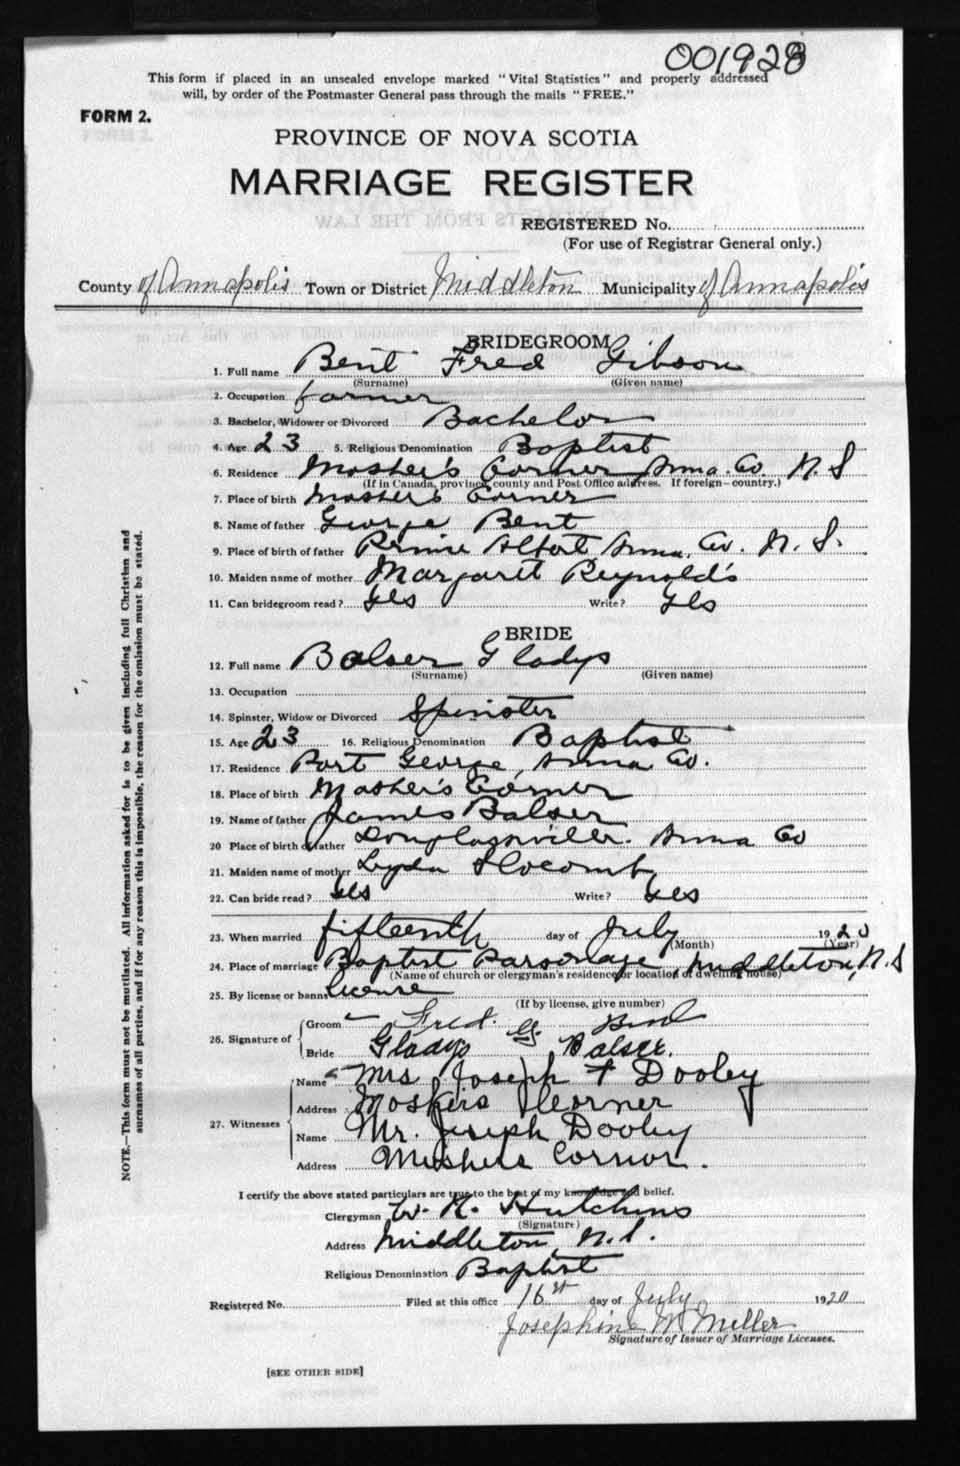 001928
This form if placed in an unsealed envelope marked "Vital Statistics" and properly addressed
will, by order of the Postmaster General pass through the mails "FREE."
FORM 2.
PROVINCE OF NOVA SCOTIA
MARRIAGE REGISTER
REGISTERED No.
(For use of Registrar General only.)
County of Annapolis Town or District Middleton Municipality of Annapolis
BRIDEGROOM
1. Full name Bent Fred Gibson
(Surname) (Given name)
2. Occupation farmer
3. Bachelor, Widower or Divorced Bachelor
4. Age 23 5. Religious Denomination Baptist
6. Residence Mosher's Corner Anna. Co. N. S
(If in Canada, province, county and Post Office address. If foreign—country.)
7. Place of birth Mosher's Corner
8. Name of father George Bent
9. Place of birth of father Prince Albert Anna. Co. N. S.
10. Maiden name of mother Margaret Reynold's
11. Can bridegroom read? Yes Write? Yes
BRIDE
12. Full name Balser Gladys
(Surname) (Given name)
13. Occupation
14. Spinster, Widow or Divorced Spinster
15. Age 23 16. Religious Denomination Baptist
17. Residence Port George, Anna Co.
18. Place of birth Mosher's Corner
19. Name of father James Balser
20 Place of birth of father Anna Co
21. Maiden name of mother Lyda Slocomb
22. Can bride read? Yes Write? Yes
23. When married fifteenth day of July 1920
(Month) (Year)
24. Place of marriage Baptist Parsonage, Middleton, N. S
(Name of church or clergyman's residence or location of dwelling house)
25. By license or banns license
(If by license, give number)
26. Signature of
Groom Fred. G. Bent
Bride Gladys Balser.
27. Witnesses
Name Mrs Joseph F Dooley
Address Moshers Corner
Name Mr. Joseph Dooley
Address Moshers Cornor.
I certify the above stated particulars are true to the best of my knowledge and belief.
Clergyman W. N. Hutchins
(Signature)
Address Middleton, N. S.
Religious Denomination Baptist
Registered No. Filed at this office 16st day of July 1920
Josephine M Miller
Signature of Issuer of Marriage Licenses.
[SEE OTHER SIDE]
NOTE.—This form must not be mutilated. All information asked for is to be given including full Christian and
surnames of all parties, and if for any reason this is impossible, the reason for the omission must be stated.